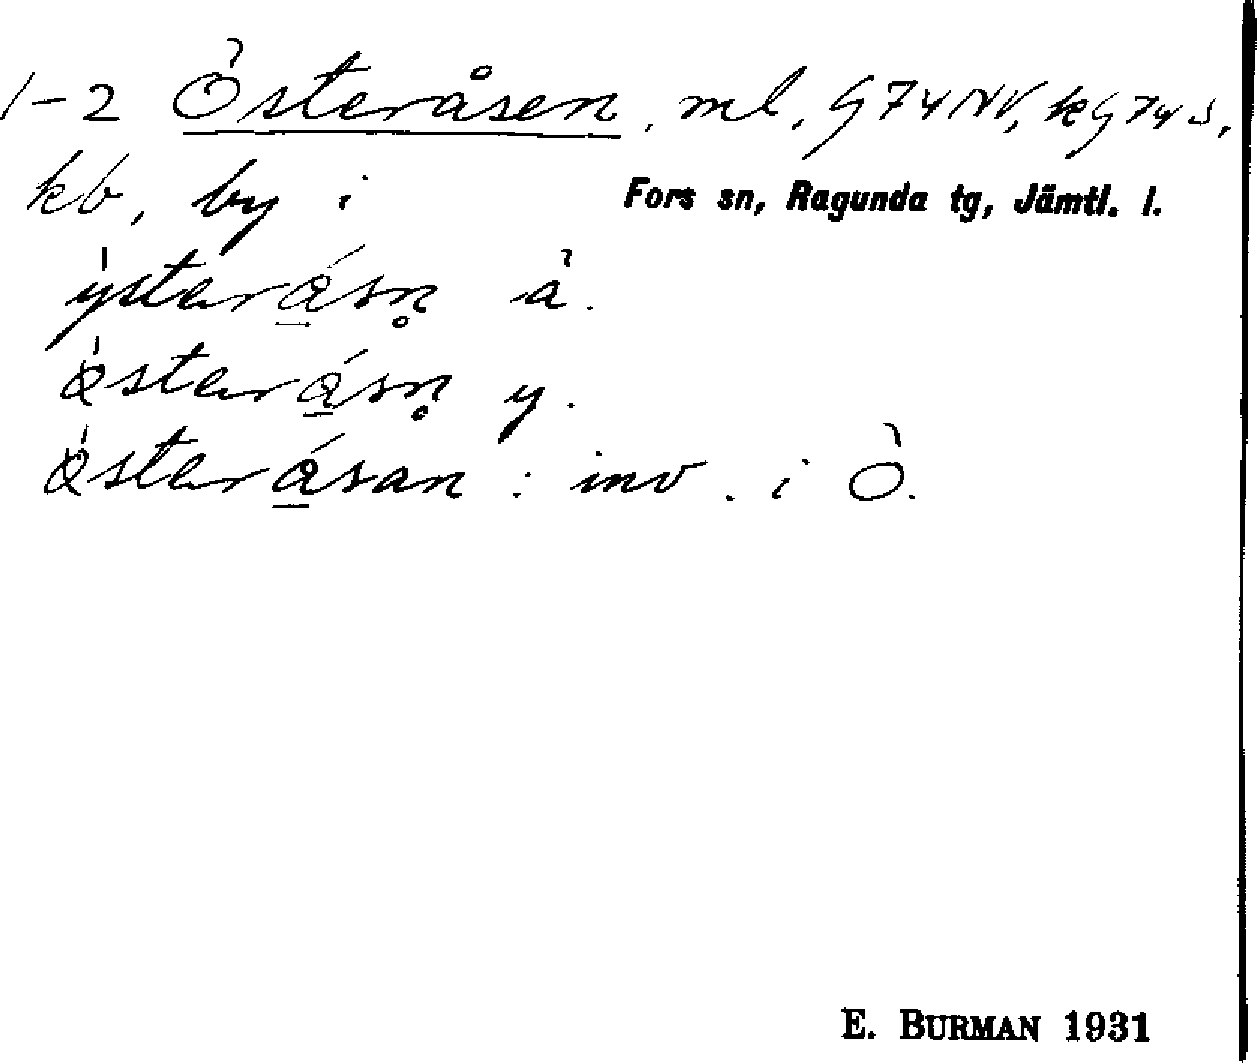 1-2 Österåsen, ml, G74NV, kG74S,
kb, by i Fors sn, Ragunda tg, Jämtl. l.
ÿsteråsn̥ ä.
østeråsn̥ y.
østeråsan : inv. i Ö.
E. BURMAN 1931